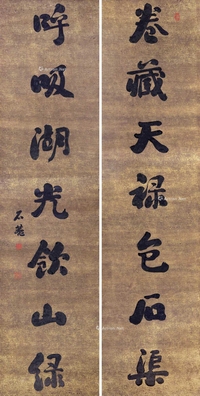 卷藏天禄包石渠
呼吸湖光饮山绿
石菴